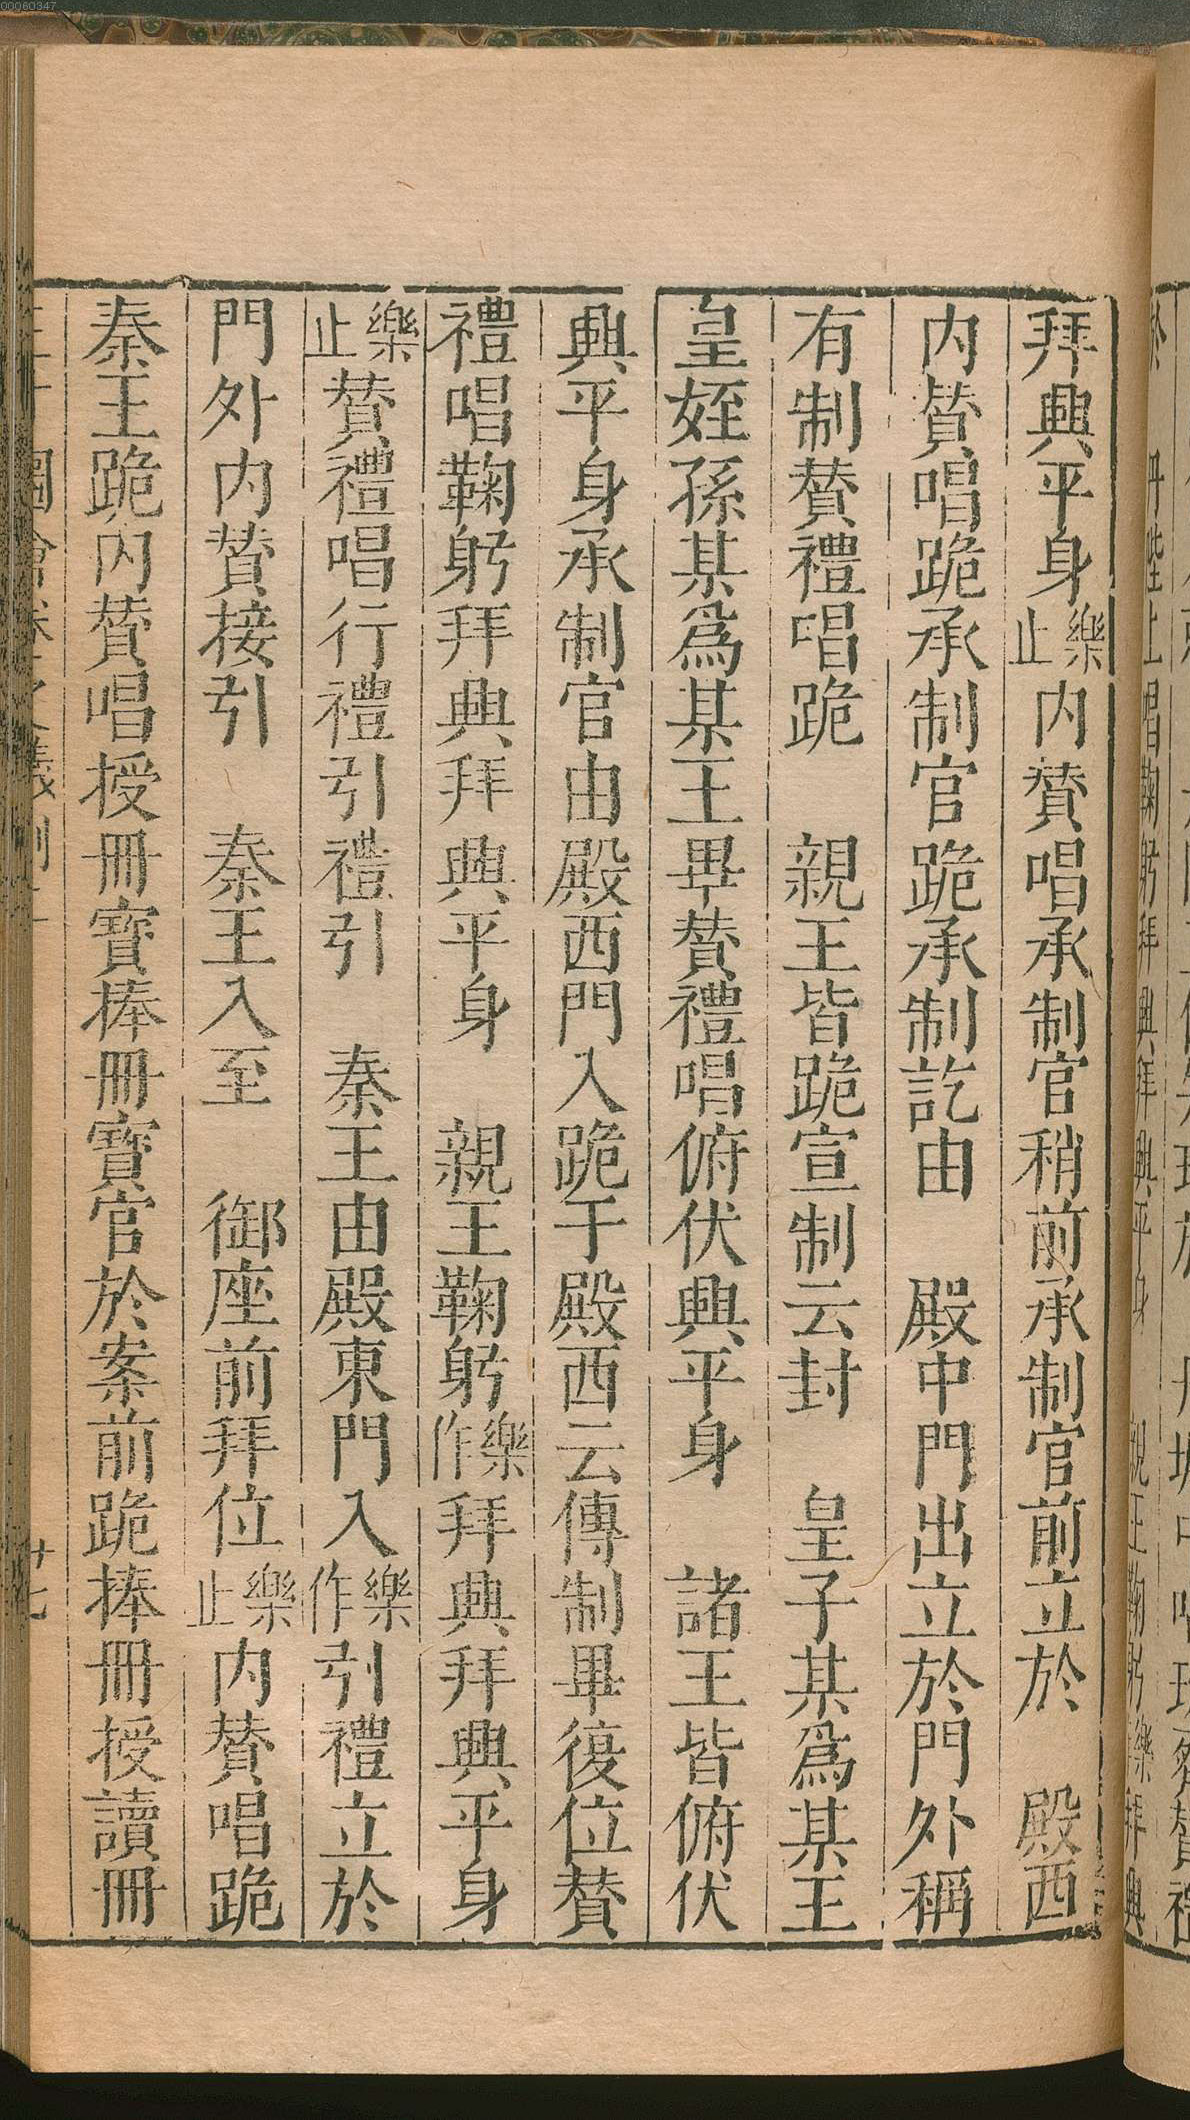 拜興平身樂止内賛唱承制官稍前承制官前立於　殿西
内賛唱跪承制官跪承制訖由　殿中門出立於門外稱
有制賛禮唱跪　親王皆跪宣制云封　皇子某爲某王
皇姪孫某爲某王畢賛禮唱俯伏興平身　諸王皆俯伏
興平身承制官由殿西門入跪于殿西云傳制畢復位賛
禮唱鞠躬拜興拜興平身　親王鞠躬樂作拜興拜興平身
樂止賛禮唱行禮引禮引　秦王由殿東門入樂作引禮立於
門外内賛接引　秦王入至　御座前拜位樂止内賛唱跪
秦王跪内賛唱授冊寶捧冊寶官於案前跪捧冊授讀冊
00060347